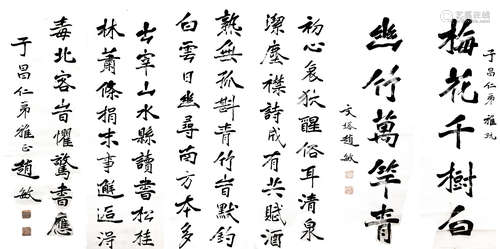 于昌仁弟雅玩
梅花千樹白
幽竹萬竿青
文塔趙敏
初心哀狖醒俗耳清泉
潔塵襟詩成有共賦酒
熟無孤斟青竹旹默釣
白雲日幽尋南方本多
出宰山水縣讀書松桂
林蕭條捐末事邂逅得
毒北客旹懼驚書應
于昌仁弟雅正趙敏